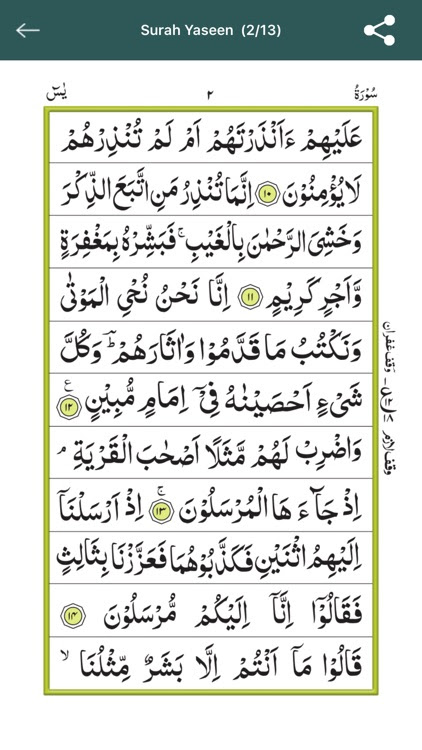 Surah Yaseen (2/13)
سُوْرَةُ ٢ يٰسٓ
عَلَيْهِمْ ءَاَنْذَرْتَهُمْ اَمْ لَمْ تُنْذِرْهُمْ
لَا يُؤْمِنُوْنَ ١٠ اِنَّمَا تُنْذِرُ مَنِ اتَّبَعَ الذِّكْرَ
وَخَشِيَ الرَّحْمٰنَ بِالْغَيْبِ ۚ فَبَشِّرْهُ بِمَغْفِرَةٍ
وَّاَجْرٍ كَرِيْمٍ ١١ اِنَّا نَحْنُ نُحْيِ الْمَوْتٰى
وَنَكْتُبُ مَا قَدَّمُوْا وَاٰثَارَهُمْ ۗ وَكُلَّ
شَيْءٍ اَحْصَيْنٰهُ فِيْٓ اِمَامٍ مُّبِيْنٍ ١٢ ع
وَاضْرِبْ لَهُمْ مَّثَلًا اَصْحٰبَ الْقَرْيَةِ ۘ
اِذْ جَآءَهَا الْمُرْسَلُوْنَ ١٣ ۚ اِذْ اَرْسَلْنَآ
اِلَيْهِمُ اثْنَيْنِ فَكَذَّبُوْهُمَا فَعَزَّزْنَا بِثَالِثٍ
فَقَالُوْٓا اِنَّآ اِلَيْكُمْ مُّرْسَلُوْنَ ١٤
قَالُوْا مَآ اَنْتُمْ اِلَّا بَشَرٌ مِّثْلُنَا ۙ
وقف غفران
وقف لازم